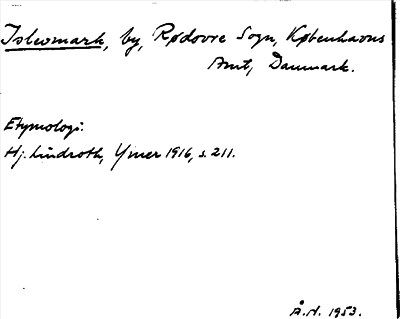 Islevmark, by, Rødovre Sogn, Københavns
Amt, Danmark.
Etymologi:
Hj. Lindroth, Ymer 1916, s. 211.
Å.N. 1953.